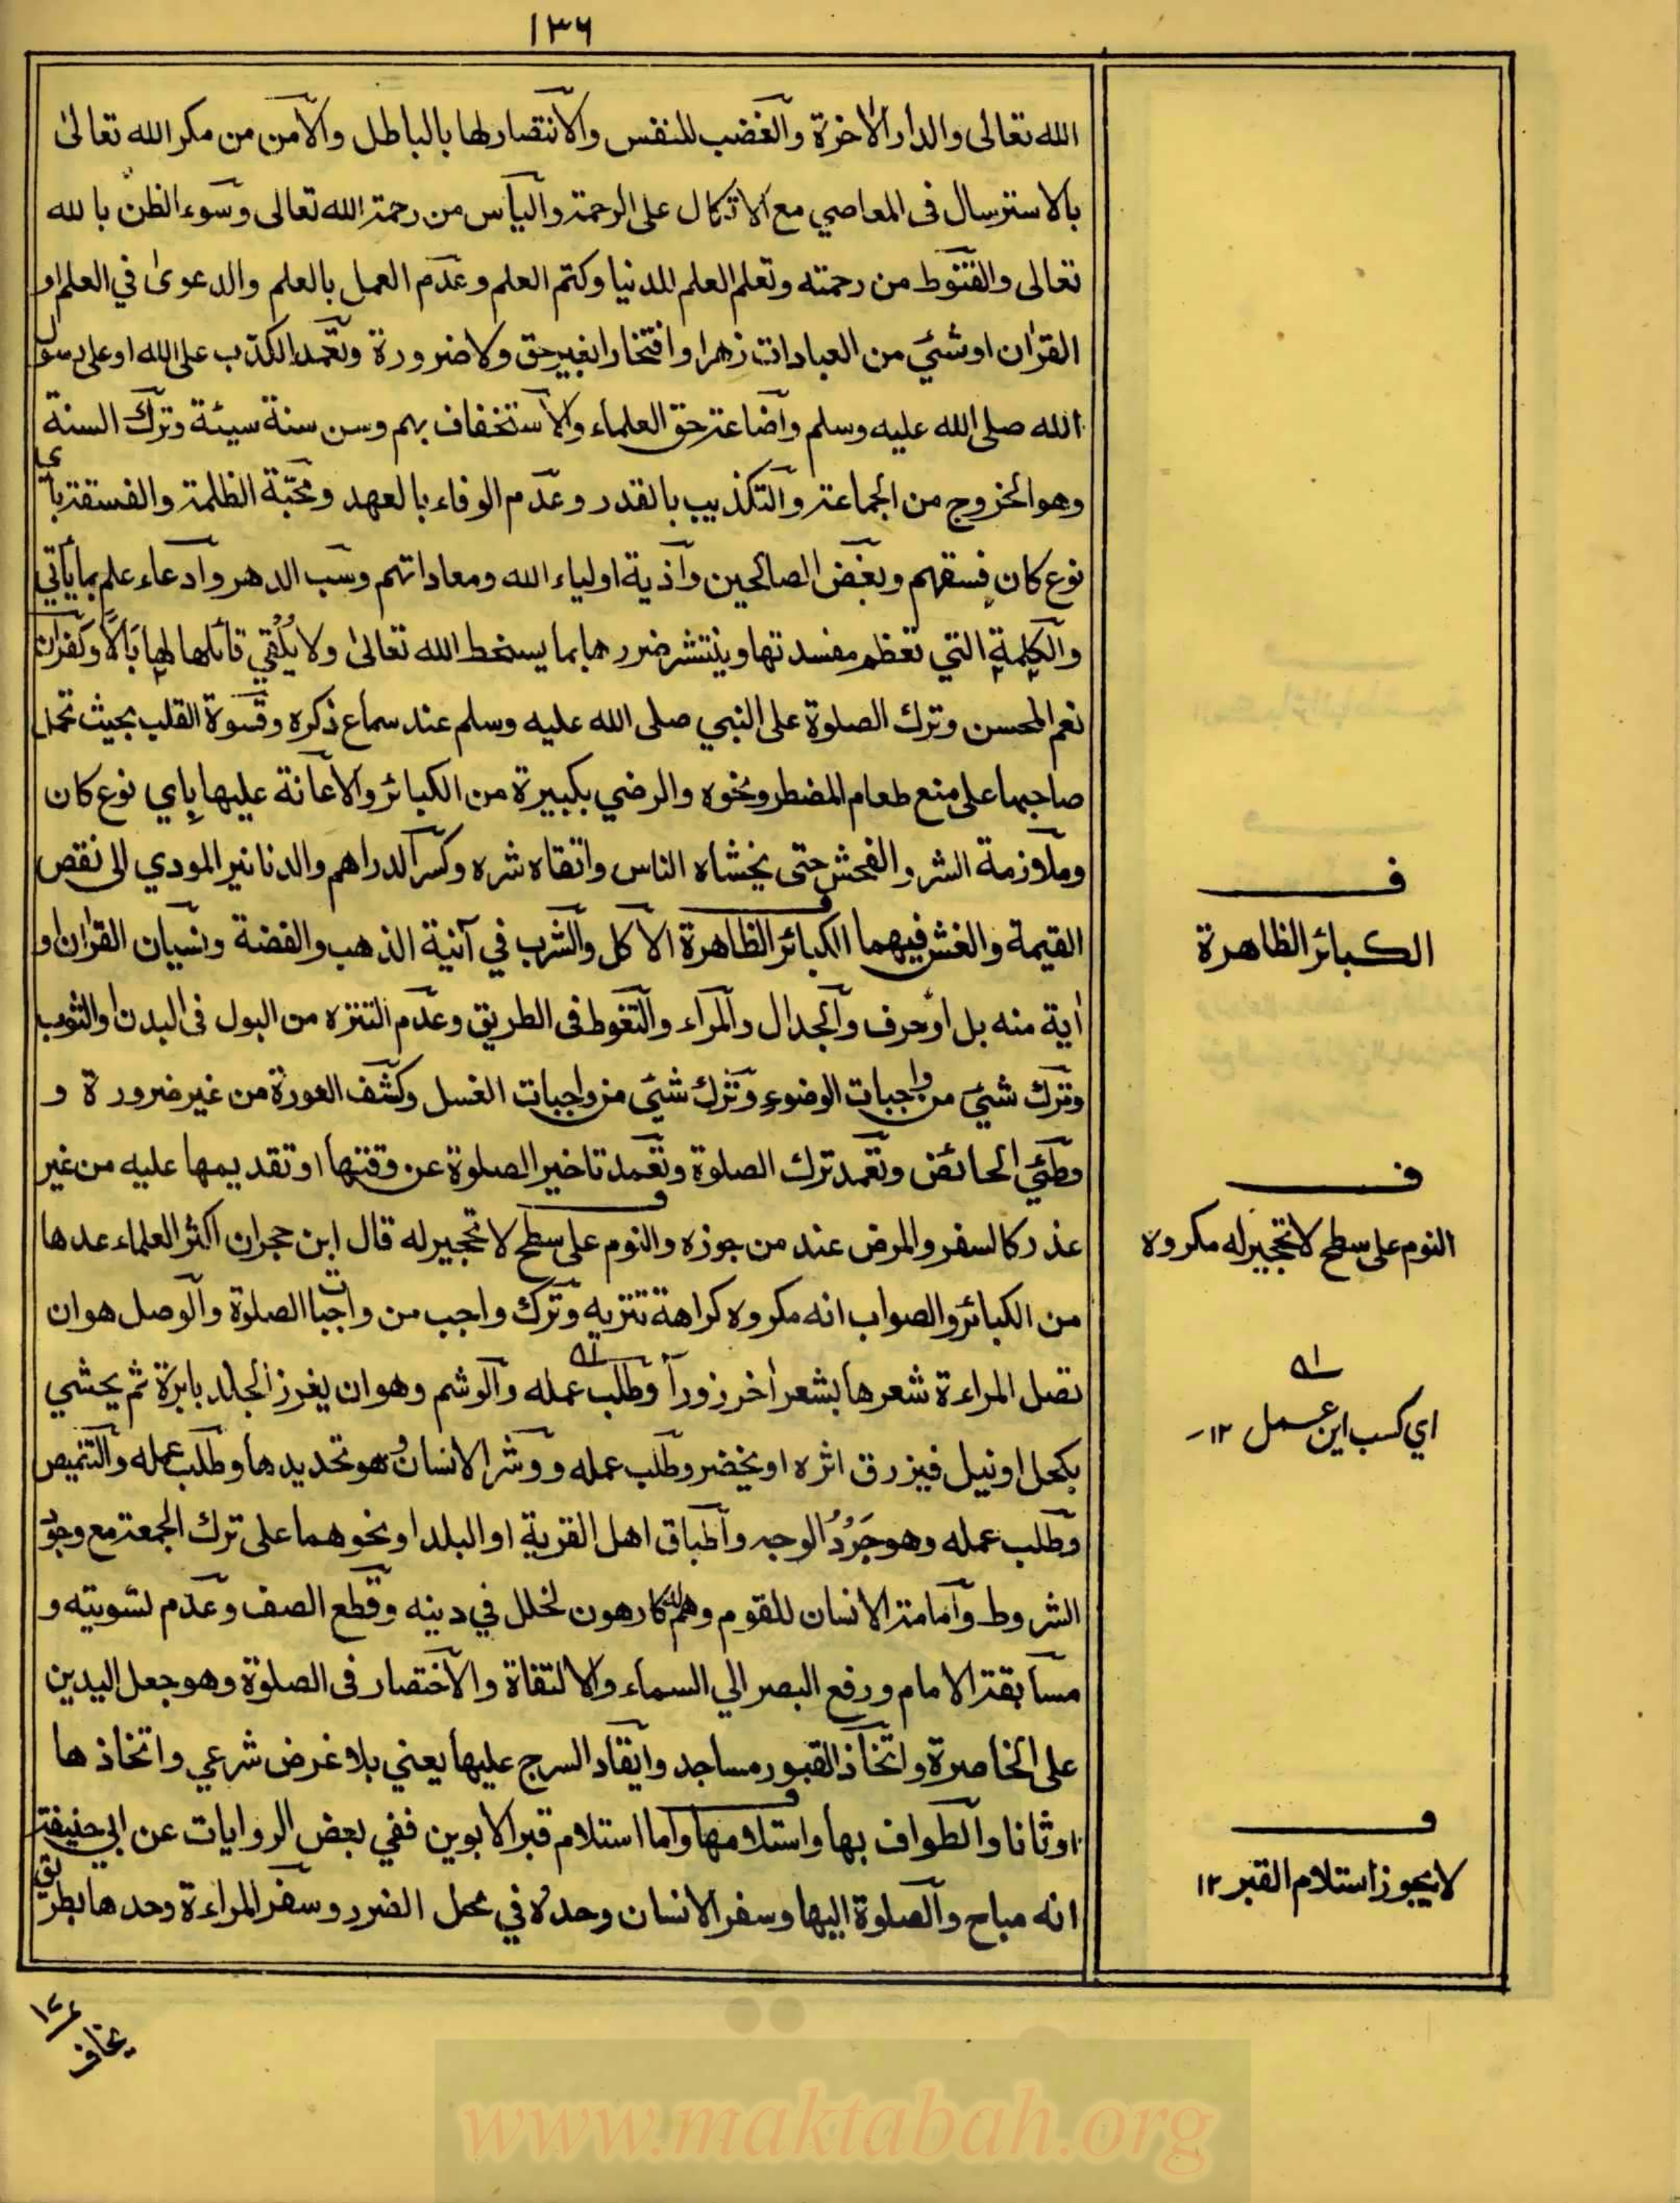 ١٣٦
الله تعالى والدار الاخرة والغضب للنفس والانتصار لها بالباطل والامن من مكر الله تعالىٰ
بالاسترسال فى المعاصي مع الاتكال على الرحمة والياس من رحمة الله تعالى وسوء الظن بالله
تعالى والقنوط من رحمته وتعلم العلم للدنيا وكتم العلم وعدم العمل بالعلم والدعوىٰ في العلم او
القرٰان او شئي من العبادات زهرا وافتخارا بغير حق ولا ضرورة وتعمد الكذب على الله او على رسول
الله صلى الله عليه وسلم واضاعة حق العلماء والاستخفاف بهم وسن سنة سيئة وترك السنة
وهو الخروج من الجماعة والتكذيب بالقدر وعدم الوفاء بالعهد ومحبّة الظلمة والفسقة باي
نوع كان فسقهم وبغض الصالحين واذية اولياء الله ومعاداتهم وسب الدهر وادعاء علم بما يأتي
والكلمة التي تعظم مفسدتها وينتشر ضررها بما يسخط الله تعالىٰ ولا يُلْقي قائلها لها بَالًا وكفران
نعم المحسن وترك الصلوة على النبي صلى الله عليه وسلم عند سماع ذكره وقسوة القلب بحيث تحمل
صاحبها على منع طعام المضطر ونحوه والرضي بكبيرة من الكبائر والاعانة عليها بِاي نوع كان
وملازمة الشر والفحش حتى يخشاه الناس واتقاه شره وكسر الدراهم والدنانير المودي الى نقص
القيمة والغش فيهما الكبائر الظاهرة الاكل والشرب في آنية الذهب والفضة ونسيان القرٰان او
اٰية منه بل او حرف والجدال والمراء والتغوط فى الطريق وعدم التنزه من البول فى البدن او الثوب
وترك شئي من واجبات الوضوء وترك شئي من واجبات الغسل وكشف العورة من غير ضرورة و
وطئي الحائض وتعمد ترك الصلوة وتعمد تاخير الصلوة عن وقتها او تقديمها عليه من غير
عذر كالسفر والمرض عند من جوزه والنوم على سطح لا تحجير له قال ابن حجر ان اكثر العلماء عدها
من الكبائر والصواب انه مكروه كراهة تنزيه وترك واجب من واجبات الصلوة والوصل هو ان
تصل المراءة شعرها بشعر اٰخر زوراً وطلب عمله والوشم وهو ان يغرز الجلد بابرة ثم يحشي
بكحل او نيل فيزرق اثره او يخضر وطلب عمله ووشر الانسان وهو تحديدها وطلب عمله والتنميص
وطلب عمله وهو جَرْدُ الوجه واطباق اهل القرية او البلد او نحوهما على ترك الجمعة مع وجود
الشروط وامامة الانسان للقوم وهم له كارهون لخلل في دينه وقطع الصف وعدم تسويته و
مسابقة الامام ورفع البصر الي السماء والالتفاة والاختصار فى الصلوة وهو جعل اليدين
على الخاصرة واتخاذ القبور مساجد وايقاد السرج عليها يعني بلا غرض شرعي واتخاذها
اوثانا والطواف بها واستلامها واما استلام قبر الابوين ففي بعض الروايات عن ابي حنيفة
انه مباح والصلوة اليها وسفر الانسان وحده في محل الضرر وسفر المراءة وحدها بطريق
ف
الكبائر الظاهرة
ف
النوم على سطح لا تحجير له مكروه
اي كسب اين عمل ١٢
ف
لا يجوز استلام القبر ١٢
يخاف
www.maktabah.org